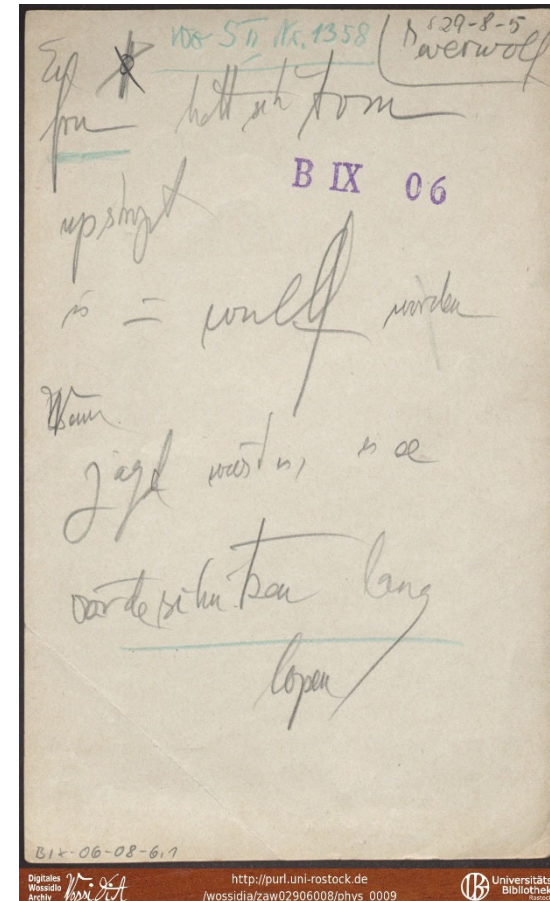 Vos 5 II Nr. 1358
S 29-8-5
Werwolf
fru hett sik
B IX 06
is = wulf worden
Wenn
jagd wäst is, is ae
vör de schützen lang
lopen
BIX-06-08-6,1
Digitales
Wossidlo
Archiv WossiDiA
http://purl.uni-rostock.de
/wossidia/zaw02906008/phys_0009
Universitäts
Bibliothek
Rostock